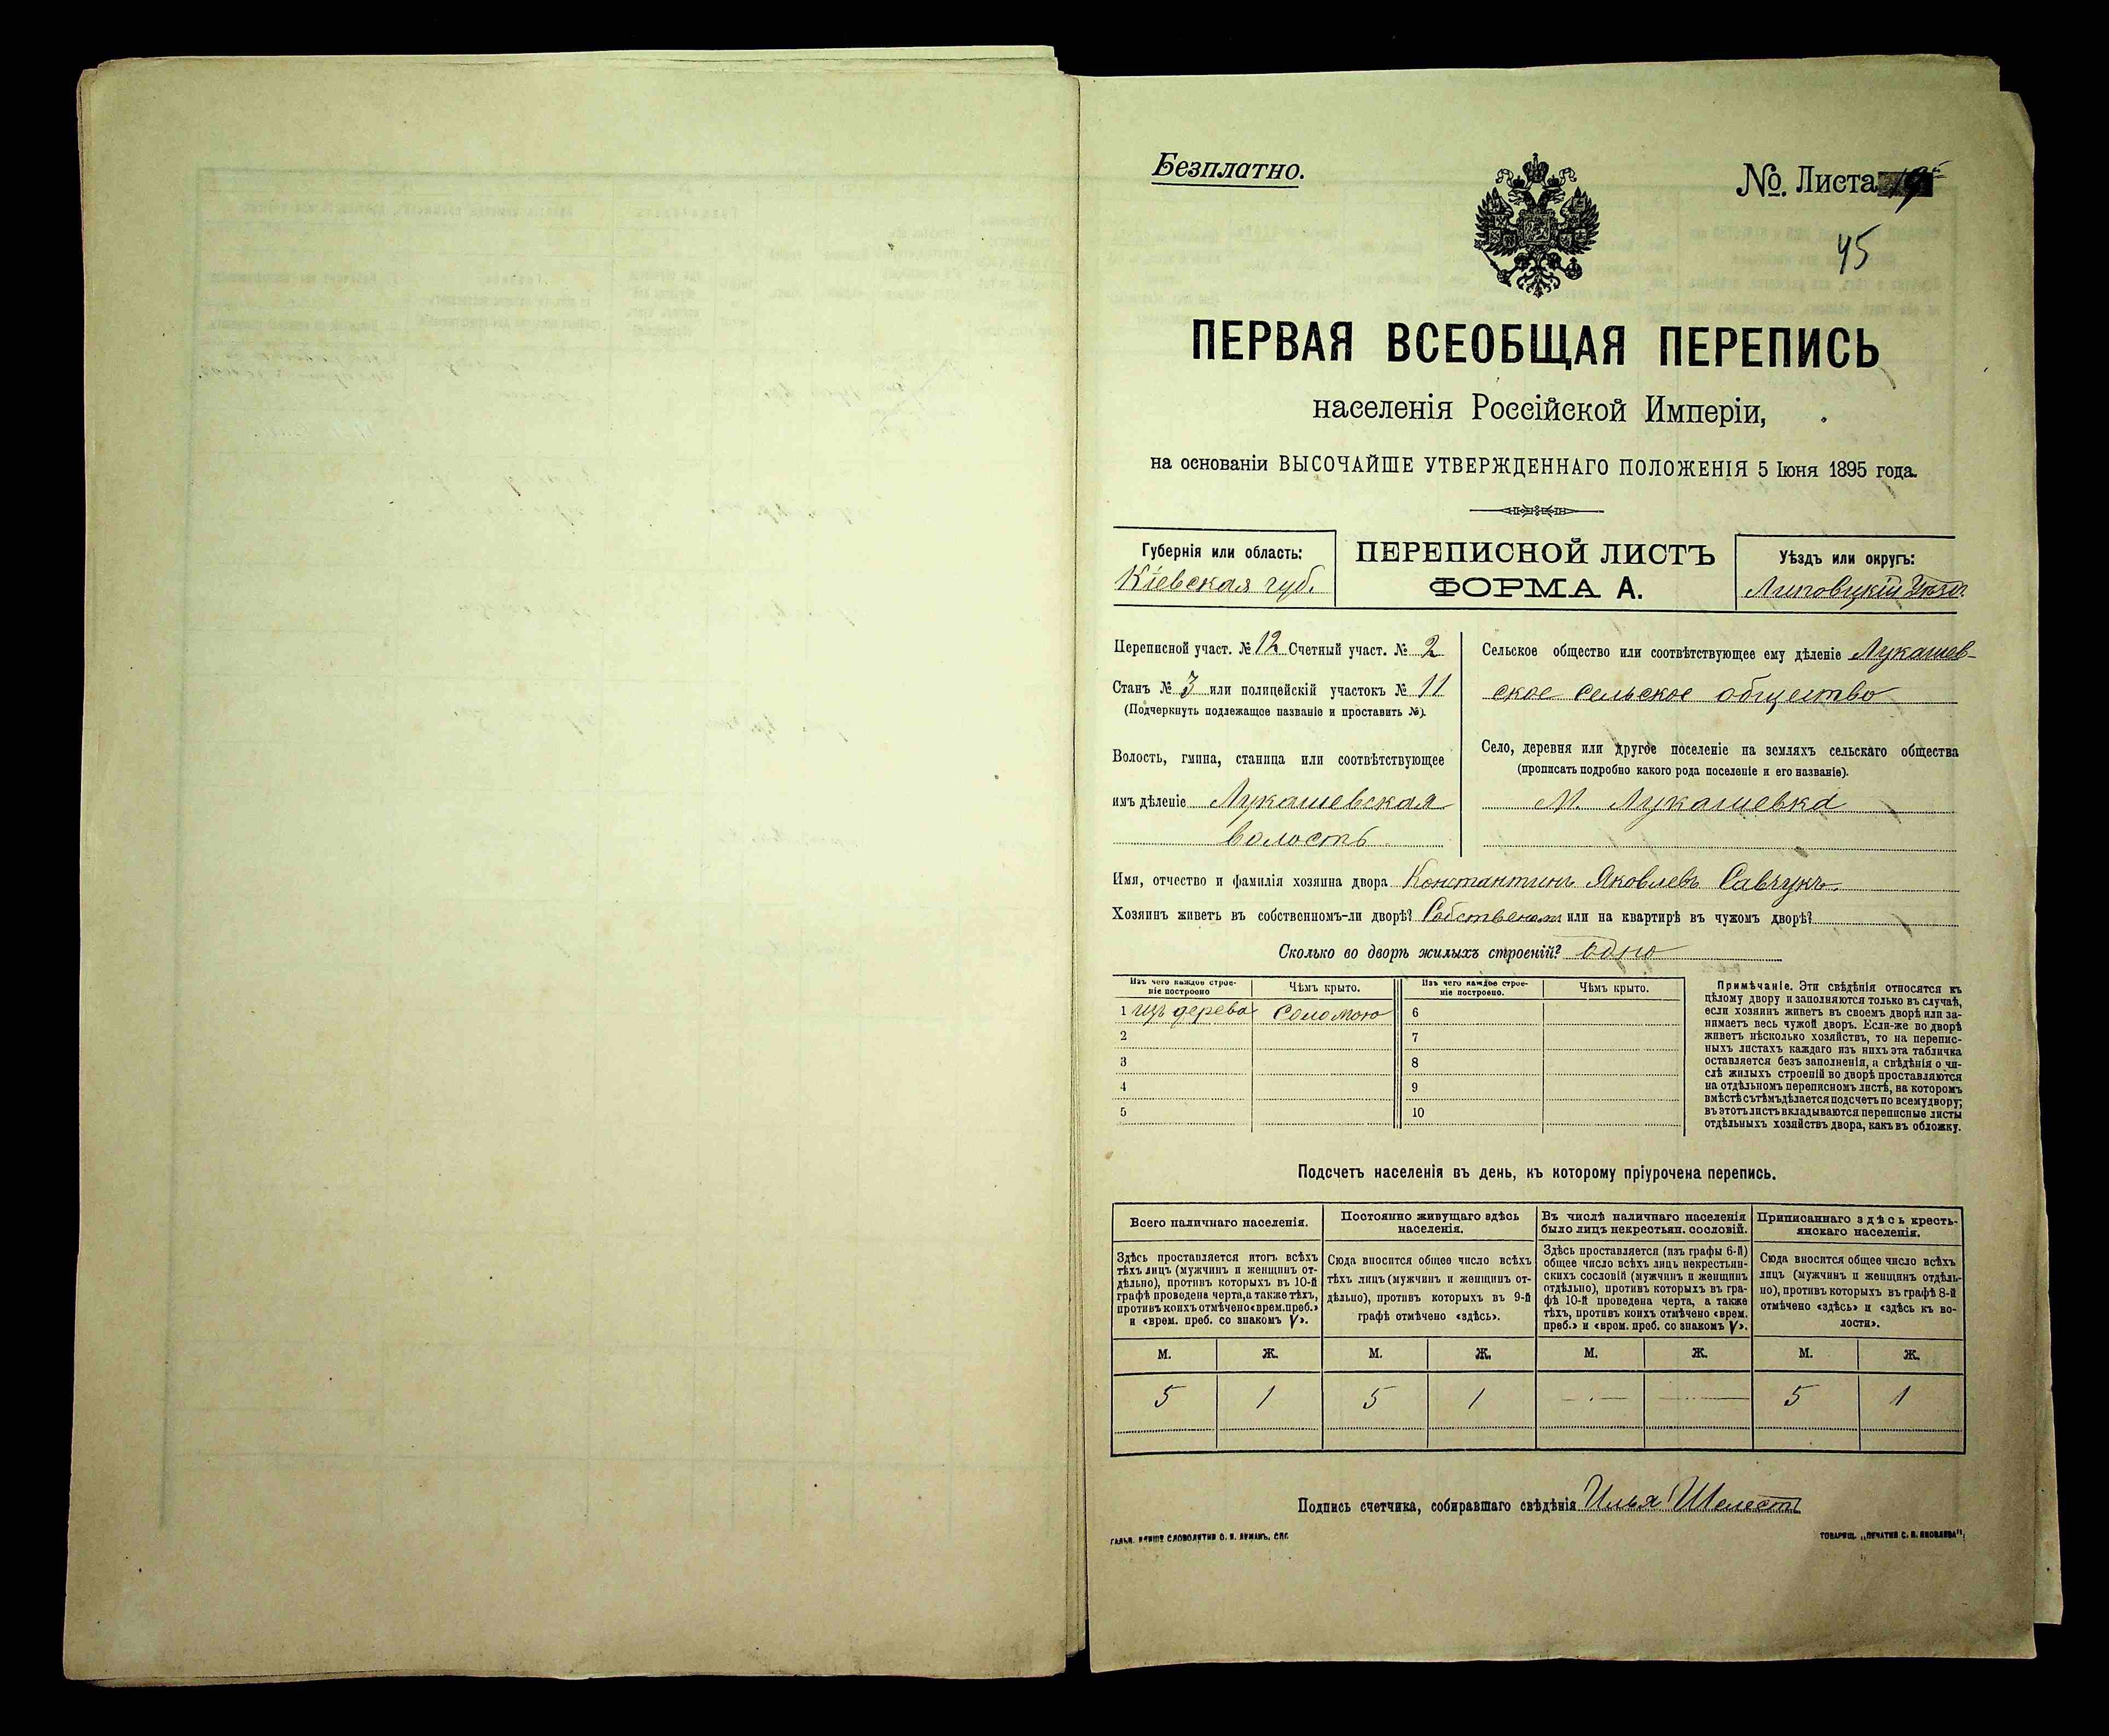 Безплатно.
№ Листа 19
45
ПЕРВАЯ ВСЕОБЩАЯ ПЕРЕПИСЬ
населенія Россійской Имперіи,
на основаніи ВЫСОЧАЙШЕ УТВЕРЖДЕННАГО ПОЛОЖЕНІЯ 5 Іюня 1895 года.
Губернія или область:
Кіевская губ.
ПЕРЕПИСНОЙ ЛИСТЪ
ФОРМА А.
Уѣздъ или округъ:
Липовецкій Уѣзд.
Переписной участ. № 12 Счетный участ. № 2
Станъ № 3 или полицейскій участокъ № 11
(Подчеркнуть подлежащое названіе и проставить №).
Волость, гмина, станица или соотвѣтствующее
имъ дѣленіе Лукашевская
волость
Сельское общество или соотвѣтствующее ему дѣленіе Лукашев-
ское сельское общество
Село, деревня или другое поселеніе на земляхъ сельскаго общества
(прописать подробно какого рода поселеніе и его названіе).
М. Лукашевка
Имя, отчество и фамилія хозяина двора Константинъ Яковлевъ Савчукъ
Хозяинъ живетъ въ собственномъ-ли дворѣ? Собственом или на квартирѣ въ чужомъ дворѣ?
Сколько во дворѣ жилыхъ строеній? одно
Изъ чего каждое строе-
ніе построено
Чѣмъ крыто.
Изъ чего каждое строе-
ніе построено.
Чѣмъ крыто.
1 изъ дерева Соломою 6
2 7
3 8
4 9
5 10
Примѣчаніе. Эти свѣдѣнія относятся къ
цѣлому двору и заполняются только въ случаѣ,
если хозяинъ живетъ въ своемъ дворѣ или за-
нимаетъ весь чужой дворъ. Если-же во дворѣ
живетъ нѣсколько хозяйствъ, то на перепис-
ныхъ листахъ каждаго изъ нихъ эта табличка
оставляется безъ заполненія, а свѣдѣнія о чи-
слѣ жилыхъ строеній во дворѣ проставляются
на отдѣльномъ переписномъ листѣ, на которомъ
вмѣстѣ съ тѣмъ дѣлается подсчетъ по всему двору;
въ этотъ листъ вкладываются переписные листы
отдѣльныхъ хозяйствъ двора, какъ въ обложку.
Подсчетъ населенія въ день, къ которому пріурочена перепись.
Всего наличнаго населенія.
Здѣсь проставляется итогъ всѣхъ
тѣхъ лицъ (мужчинъ и женщинъ от-
дѣльно), противъ которыхъ въ 10-й
графѣ проведена черта, а также тѣхъ,
противъ коихъ отмѣчено «врем. преб.»
и «врем. преб. со знакомъ V».
Постоянно живущаго здѣсь
населенія.
Сюда вносится общее число всѣхъ
тѣхъ лицъ (мужчинъ и женщинъ от-
дѣльно), противъ которыхъ въ 9-й
графѣ отмѣчено «здѣсь».
Въ числѣ наличнаго населенія
было лицъ некрестьян. сословій.
Здѣсь проставляется (изъ графы 6-й)
общее число всѣхъ лицъ некрестьян-
скихъ сословій (мужчинъ и женщинъ
отдѣльно), противъ которыхъ въ гра-
фѣ 10-й проведена черта, а также
тѣхъ, противъ коихъ отмѣчено «врем.
преб.» и «врем. преб. со знакомъ V».
Приписаннаго здѣсь кресть-
янскаго населенія.
Сюда вносится общее число всѣхъ
лицъ (мужчинъ и женщинъ отдѣль-
но), противъ которыхъ въ графѣ 8-й
отмѣчено «здѣсь» и «здѣсь къ во-
лости».
М. Ж. М. Ж. М. Ж. М. Ж.
5 1 5 1 — — 5 1
Подпись счетчика, собиравшаго свѣдѣнія Илья Шелестъ
ТОВАРИЩ. „ПЕЧАТНЯ С. П. ЯКОВЛЕВА“.